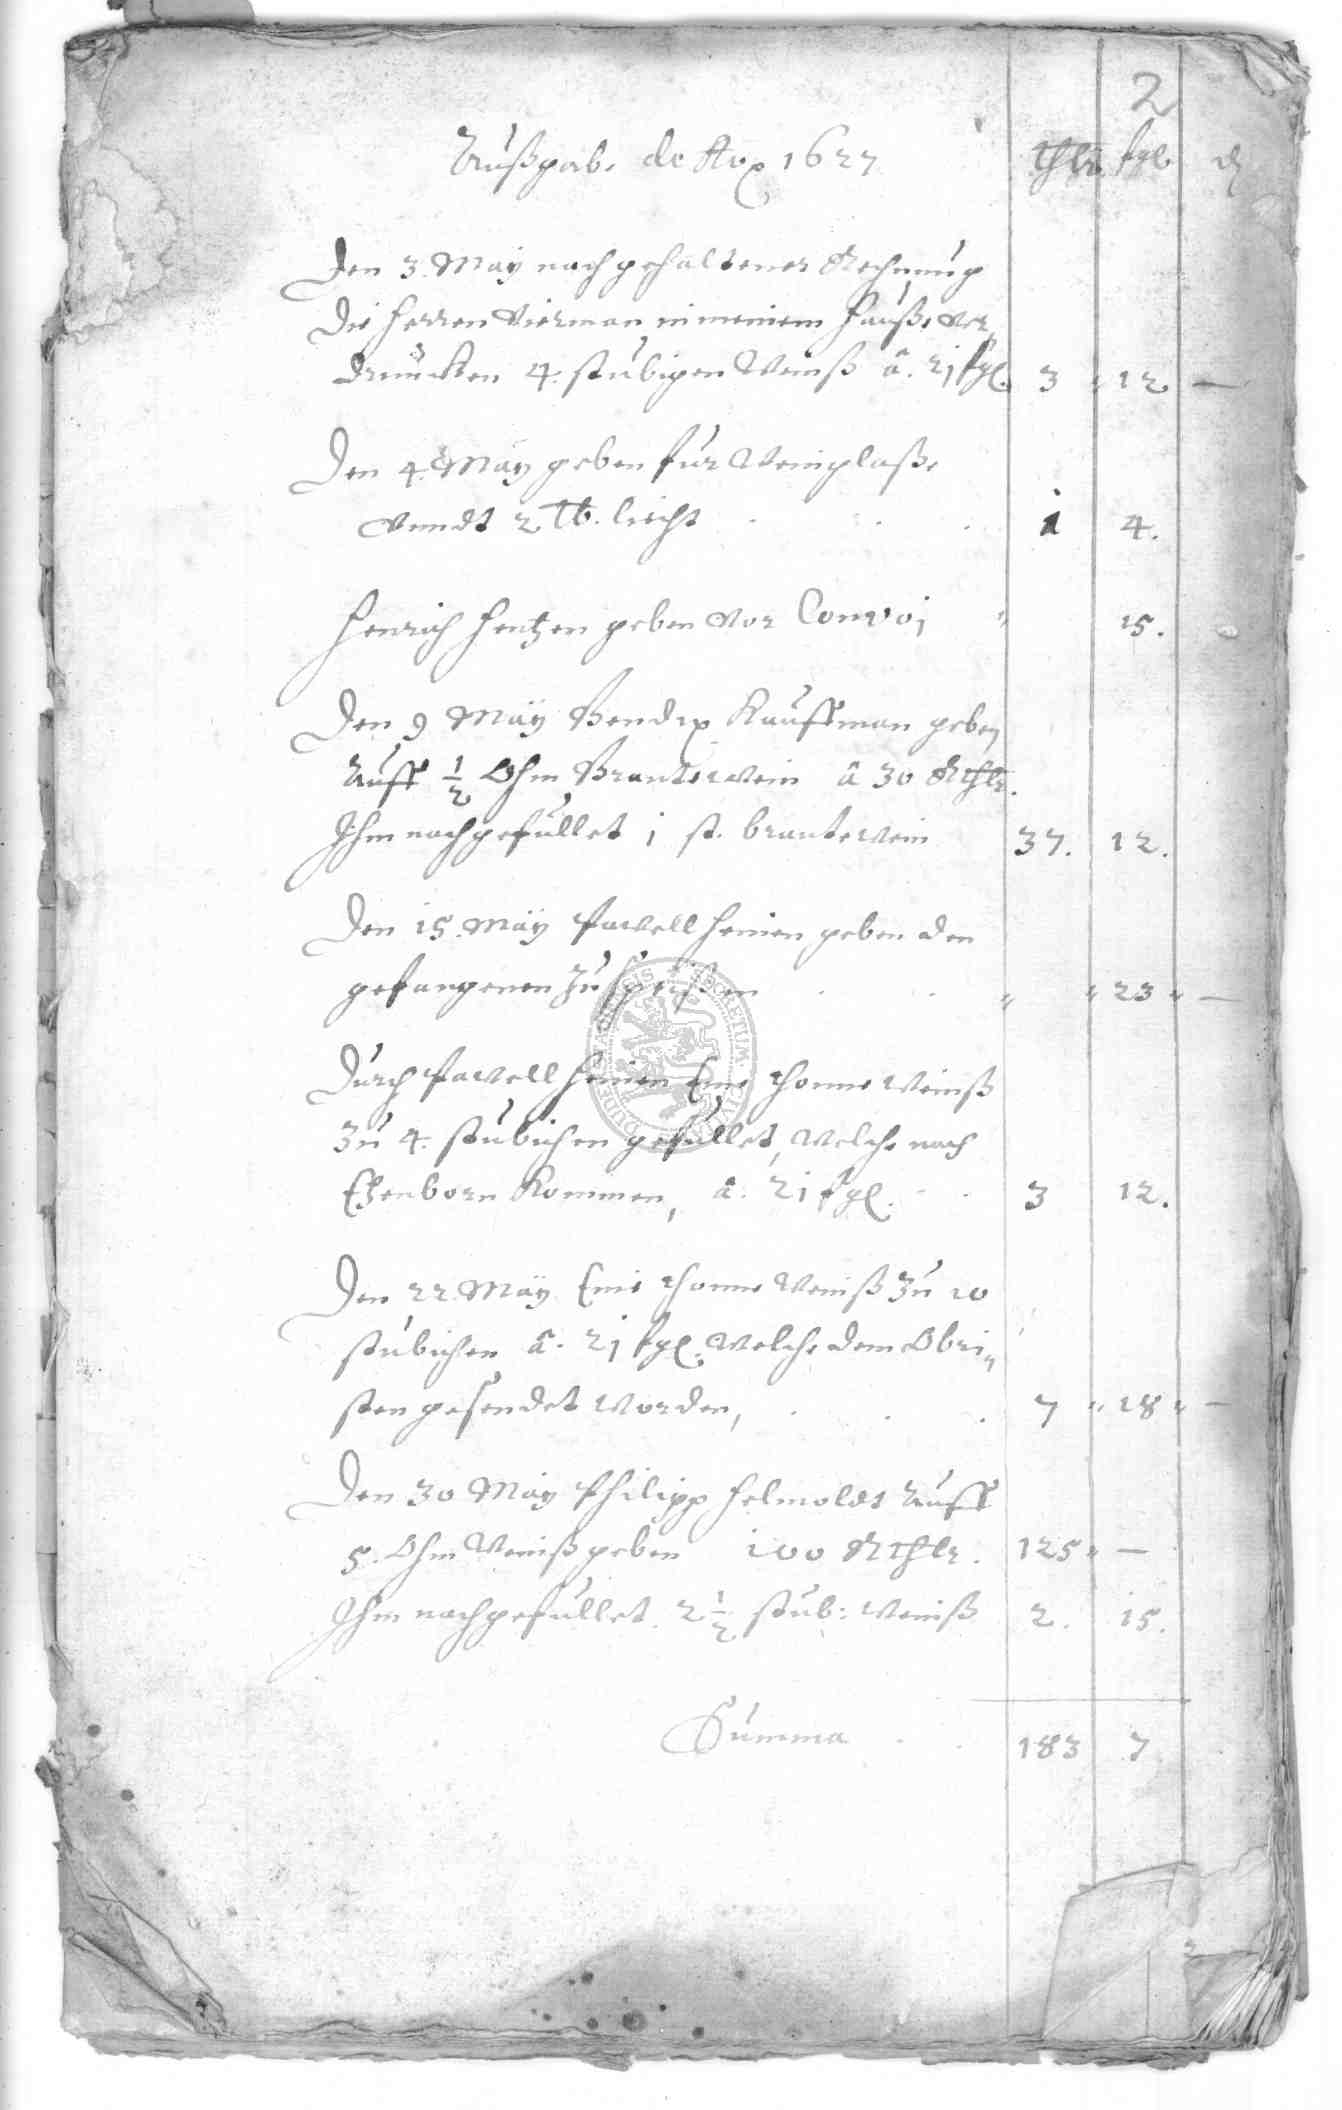 2
Außgabe de Ao 1627 thlr fgl d
Den 3. May nach gehaltener Rechnung
die herren Vierman in meinem hauße ver
druncken 4. stubigen Weinß â. 21 fgl. 3 " 12 —
Den 4. May geben fur Weinglaße
vnndt 2 lb. liecht . . . 1 4.
Henrich Hentzen geben vor Convoj " 15.
Den 9 May Bendix Kauffman geben
Auff 1/2 Ohm Brantewein â 30 Rthlr.
Ihm nachgefullet 1 st. brantewein 37. 12.
Den 15. May Pawell Heinen geben den
gefangenen zu speißen . . " " 23 " —
Durch Pawell Heinen Eine thonne Weinß
Zu 4. stubichen gefullet, welche nach
Etzenborn kommen, â. 21 fgl. . . 3 12.
Den 22. May Eine thonne Weinß Zu 10
stubichen â. 21 fgl. welche dem Obri"
sten gesendet worden, . . . 7 " 18 " —
Den 30 May Philipp Helmoldt Auff
5. Ohm Weinß geben 100 Rthlr. 125 " —
Ihm nachgefullet 2 1/2 stub: Weinß 2. 15.
Summa . . 183 7